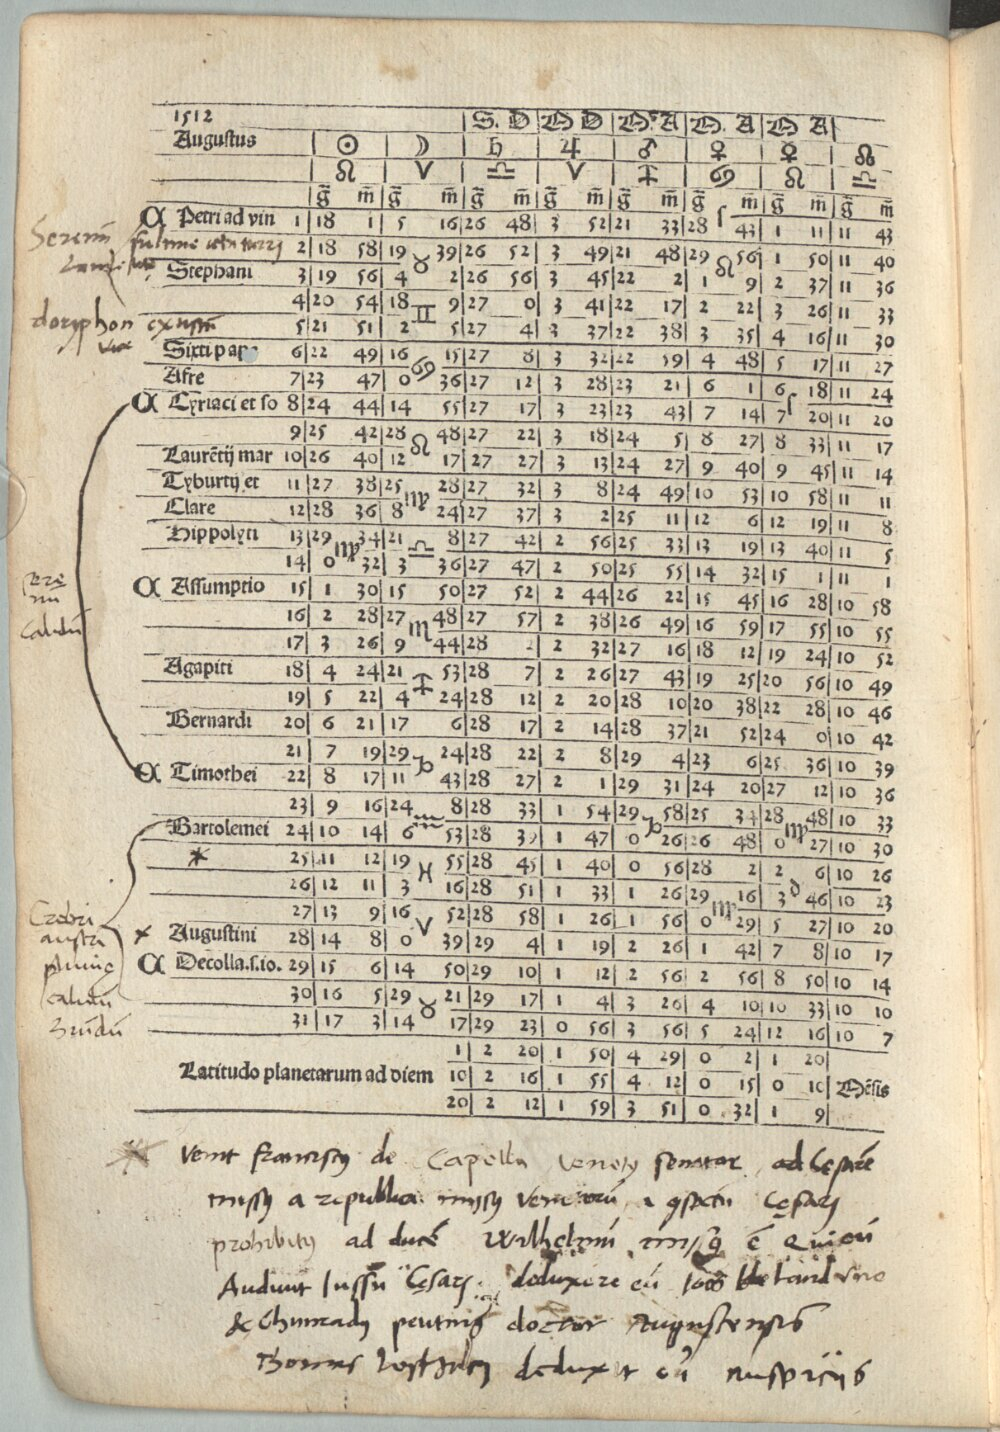 1512 S. D M D M A M. A M A
Augustus ☉ ☽ ♄ ♃ ♂ ♀ ☿ ☊
♌ ♈ ♎ ♈ ♐ ♋ ♌ ♎
g̃ m̃ g̃ m̃ g̃ m̃ g̃ m̃ g̃ m̃ g̃ m̃ g̃ m̃ g̃ m̃
Petri ad vin 1 18 1 5 16 26 48 3 52 21 33 28 43 1 11 11 43
2 18 58 19 39 26 52 3 49 21 48 29 56 1 50 11 40
Stephani 3 19 56 4 ♉ 2 26 56 3 45 22 2 1 ♌ 9 2 37 11 36
4 20 54 18 9 27 0 3 41 22 17 2 22 3 26 11 33
5 21 51 2 ♊ 5 27 4 3 37 22 38 3 35 4 16 11 30
Sixti pap 6 22 49 16 15 27 8 3 32 22 59 4 48 5 17 11 27
Afre 7 23 47 0 ♋ 36 27 12 3 28 23 21 6 1 6 18 11 24
Cyriaci et so 8 24 44 14 55 27 17 3 23 23 43 7 14 7 20 11 20
9 25 42 28 ♌ 48 27 22 3 18 24 5 8 27 8 33 11 17
Laurētij mar 10 26 40 12 17 27 27 3 13 24 27 9 40 9 45 11 14
Tyburtij et 11 27 38 25 ♍ 28 27 32 3 8 24 49 10 53 10 58 11 11
Clare 12 28 36 8 24 27 37 3 2 25 11 12 6 12 19 11 8
Hippolyti 13 29 34 21 ♎ 8 27 42 2 56 25 33 13 19 13 40 11 5
14 0 ♍ 32 3 36 27 47 2 50 25 55 14 32 15 1 11 1
Assumptio 15 1 30 15 50 27 52 2 44 26 22 15 45 16 28 10 58
16 2 28 27 ♏ 48 27 57 2 38 26 49 16 59 17 55 10 55
17 3 26 9 44 28 2 2 32 27 16 18 12 19 24 10 52
Agapiti 18 4 24 21 ♐ 53 28 7 2 26 27 43 19 25 20 56 10 49
19 5 22 4 24 28 12 2 20 28 10 20 38 22 28 10 46
Bernardi 20 6 21 17 6 28 17 2 14 28 37 21 52 24 0 10 42
21 7 19 29 ♑ 24 28 22 2 8 29 4 23 6 25 36 10 39
Timothei 22 8 17 11 43 28 27 2 1 29 31 24 20 27 12 10 36
23 9 16 24 ♒ 8 28 33 1 54 29 58 25 34 28 48 10 33
Bartolemei 24 10 14 6 53 28 39 1 47 0 ♑ 26 26 48 0 ♍ 27 10 30
25 11 12 19 ♓ 55 28 45 1 40 0 56 28 2 2 6 10 26
26 12 11 3 16 28 51 1 33 1 26 29 16 3 46 10 23
27 13 9 16 ♈ 52 28 58 1 26 1 56 0 ♍ 29 5 27 10 20
Augustini 28 14 8 0 39 29 4 1 19 2 26 1 42 7 8 10 17
Decolla.s.io. 29 15 6 14 50 29 10 1 12 2 56 2 56 8 50 10 14
30 16 5 29 ♉ 21 29 17 1 4 3 26 4 10 10 33 10 10
31 17 3 14 17 29 23 0 56 3 56 5 24 12 16 10 7
1 2 20 1 50 4 29 0 2 1 20
Latitudo planetarum ad diem 10 2 16 1 55 4 12 0 15 0 10 Mēsis
20 2 12 1 59 3 51 0 32 1 9
doryphon
calidū
Crebri
austri
calidū
venit franciscus de Capella Venetus senator ad Cesarē
missus a republica Venetorū Cesaris
prohibitus ad ducē Wilhelmū
Audivit Iussu Cesaris deduxere eū
& Chunradus peutinger doctor Augustensis
Thomas deduxit eū auspiciis